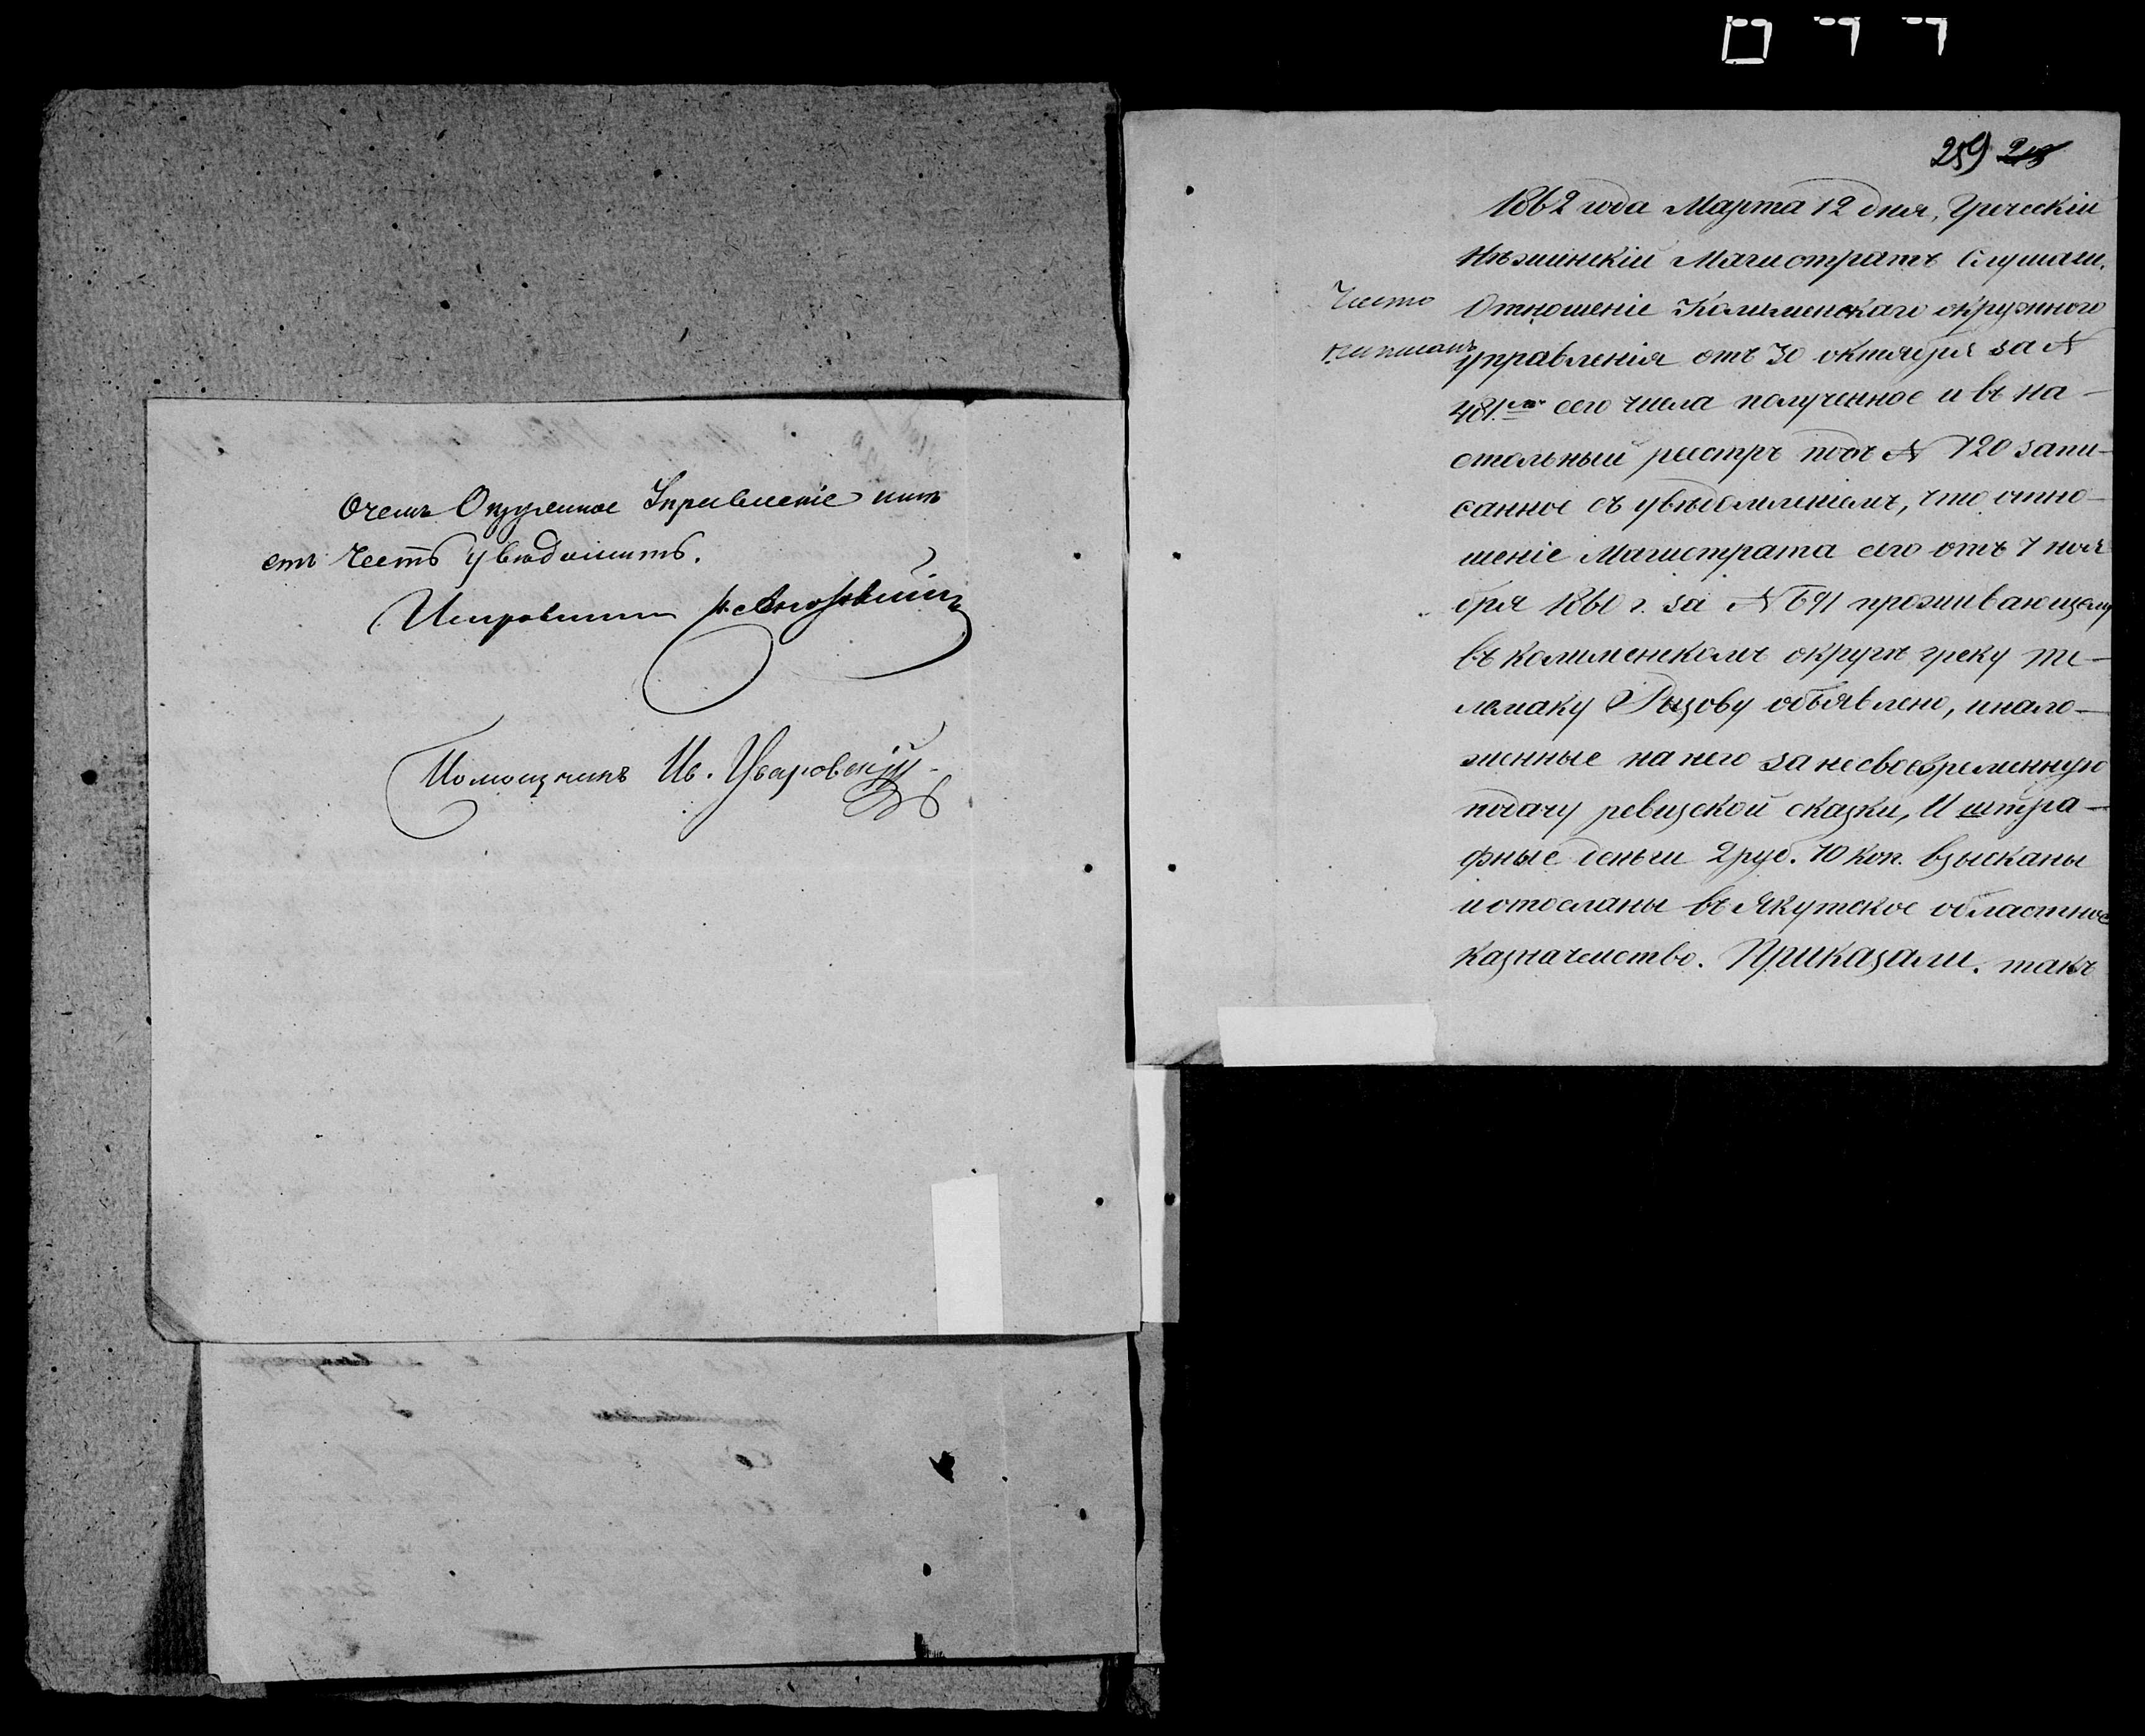 О чемъ Окружное Управленіе имѣ
етъ честь увѣдомить.
Исправникъ
Помощникъ Ив. Уваровскій
259
1862 года Марта 12 дня, Греческій
Нѣжинскій Магистратъ Слушали.
Отношеніе Колымскаго окружного
управленія отъ 30 октября за №
481. сего числа полученное и въ на-
стольный реестръ подъ № 120 запи-
санное съ увѣдомленіемъ, что отно-
шеніе Магистрата сего отъ 7 ноя
бря 1860 г. за № 691 проживающему
въ колымскомъ округѣ греку те-
лемаку Рызову объявлено, и нало-
женные на него за несвоевременную
подачу ревизской сказки, И штра-
фные деньги 2 руб. 70 коп. взысканы
и отосланы въ Якутское областное
казначейство. Приказали. такъ
Чисто